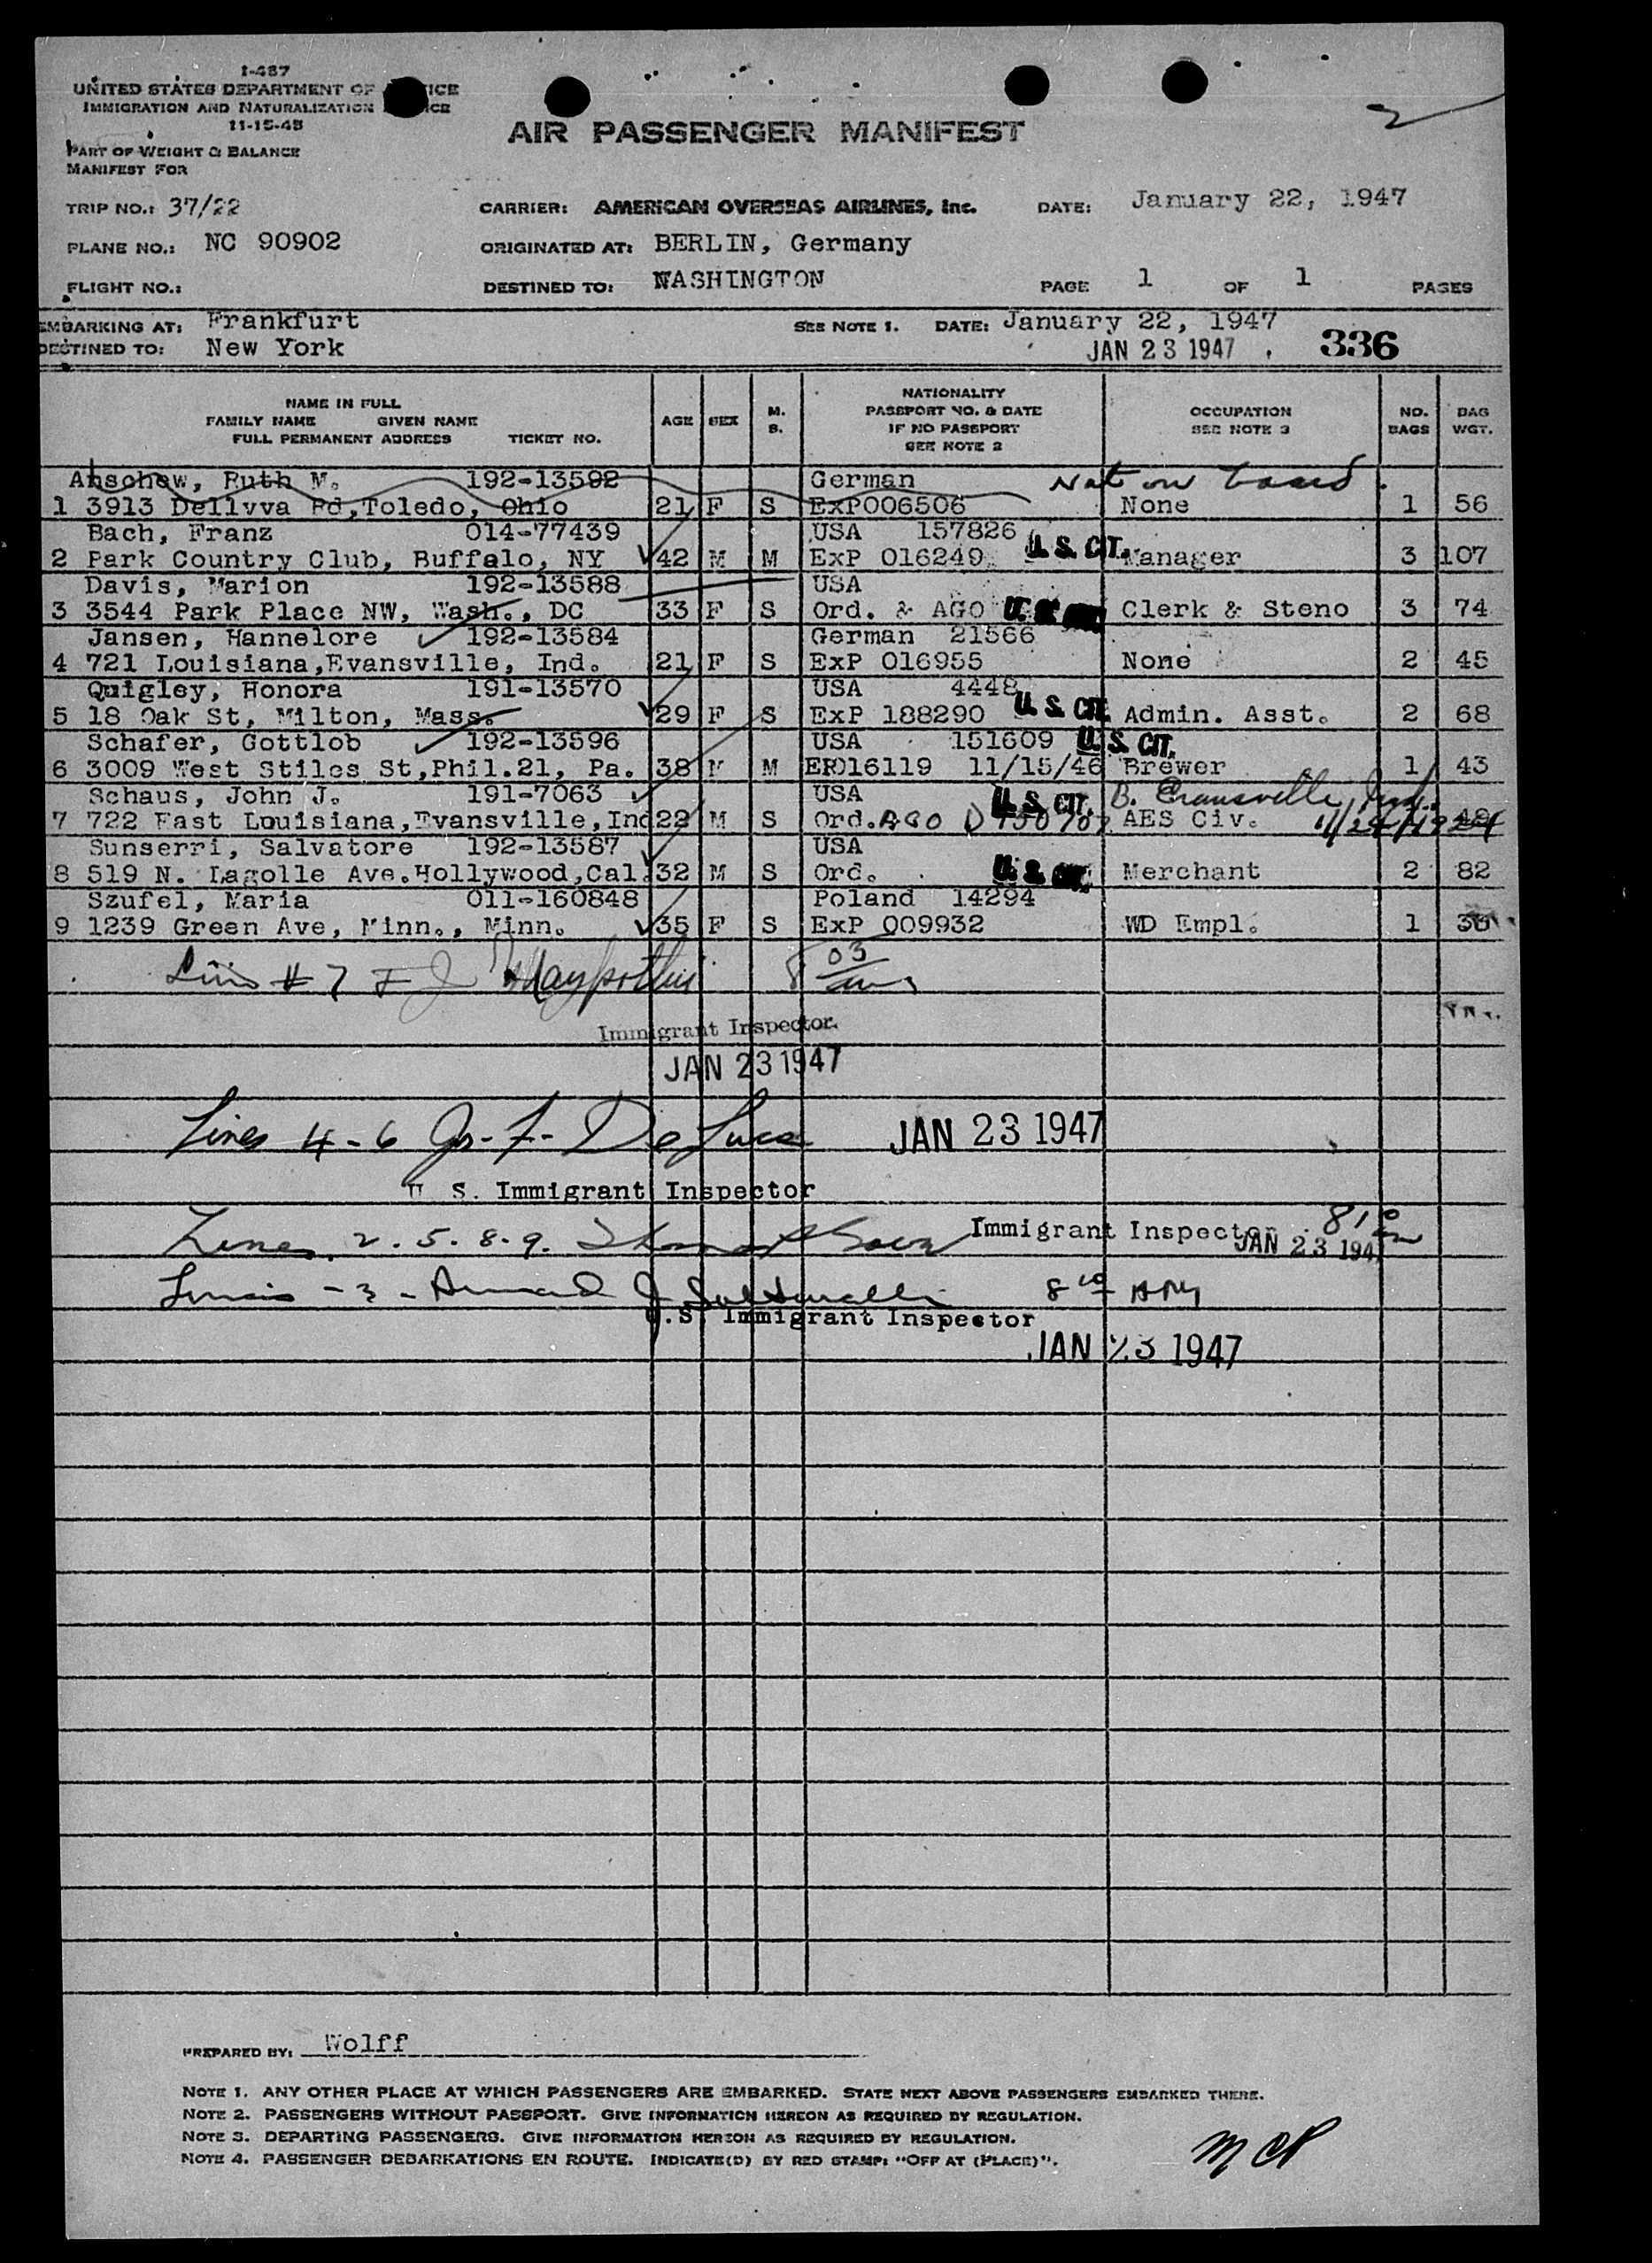 I-487
UNITED STATES DEPARTMENT OF ICE
IMMIGRATION AND NATURALIZATION ICE
11-15-45
PART OF WEIGHT & BALANCE
MANIFEST FOR
AIR PASSENGER MANIFEST
2
TRIP NO.: 37/22 CARRIER: AMERICAN OVERSEAS AIRLINES, Inc. DATE: January 22, 1947
PLANE NO.: NC 90902 ORIGINATED AT: BERLIN, Germany
FLIGHT NO.: DESTINED TO: WASHINGTON PAGE 1 OF 1 PAGES
EMBARKING AT: Frankfurt SEE NOTE 1. DATE: January 22, 1947
DESTINED TO: New York JAN 23 1947 336
NAME IN FULL
FAMILY NAME GIVEN NAME
FULL PERMANENT ADDRESS TICKET NO.
AGE SEX M. S.
NATIONALITY
PASSPORT NO. & DATE
IF NO PASSPORT
SEE NOTE 2
OCCUPATION
SEE NOTE 3
NO. BAGS
BAG WGT.
Anschew, Ruth M. 192-13592 German Not on board.
1 3913 Dellvva Rd,Toledo, Ohio 21 F S ExP006506 None 1 56
Bach, Franz 014-77439 USA 157826
2 Park Country Club, Buffalo, NY 42 M M ExP 016249 U.S. CIT. Manager 3 107
Davis, Marion 192-13588 USA
3 3544 Park Place NW, Wash., DC 33 F S Ord. & AGO U.S. CIT. Clerk & Steno 3 74
Jansen, Hannelore 192-13584 German 21566
4 721 Louisiana,Evansville, Ind. 21 F S ExP 016955 None 2 45
Quigley, Honora 191-13570 USA 4448
5 18 Oak St, Milton, Mass. 29 F S ExP 188290 U.S. CIT. Admin. Asst. 2 68
Schafer, Gottlob 192-13596 USA 151609 U.S. CIT.
6 3009 West Stiles St,Phil.21, Pa. 38 M M EP016119 11/15/46 Brewer 1 43
Schaus, John J. 191-7063 USA U.S. CIT. B. Evansville, Ind.
7 722 East Louisiana,Evansville,Ind 22 M S Ord. AGO AES Civ. 11/24/1924
Sunserri, Salvatore 192-13587 USA
8 519 N. Lagolle Ave.Hollywood,Cal. 32 M S Ord. U.S. CIT. Merchant 2 82
Szufel, Maria 011-160848 Poland 14294
9 1239 Green Ave, Minn., Minn. 35 F S ExP 009932 WD Empl. 1 30
# 7 8 03
Immigrant Inspector.
JAN 23 1947
Lines 4-6 De Luca JAN 23 1947
U. S. Immigrant Inspector
Lines 2. 5. 8. 9. Immigrant Inspector 8 10
JAN 23 1947
- 3 - 8 10 AM
U.S. Immigrant Inspector
JAN 23 1947
PREPARED BY: Wolff
NOTE 1. ANY OTHER PLACE AT WHICH PASSENGERS ARE EMBARKED. STATE NEXT ABOVE PASSENGERS EMBARKED THERE.
NOTE 2. PASSENGERS WITHOUT PASSPORT. GIVE INFORMATION HEREON AS REQUIRED BY REGULATION.
NOTE 3. DEPARTING PASSENGERS. GIVE INFORMATION HEREON AS REQUIRED BY REGULATION.
NOTE 4. PASSENGER DEBARKATIONS EN ROUTE. INDICATE(D) BY RED STAMP: "OFF AT (PLACE)".